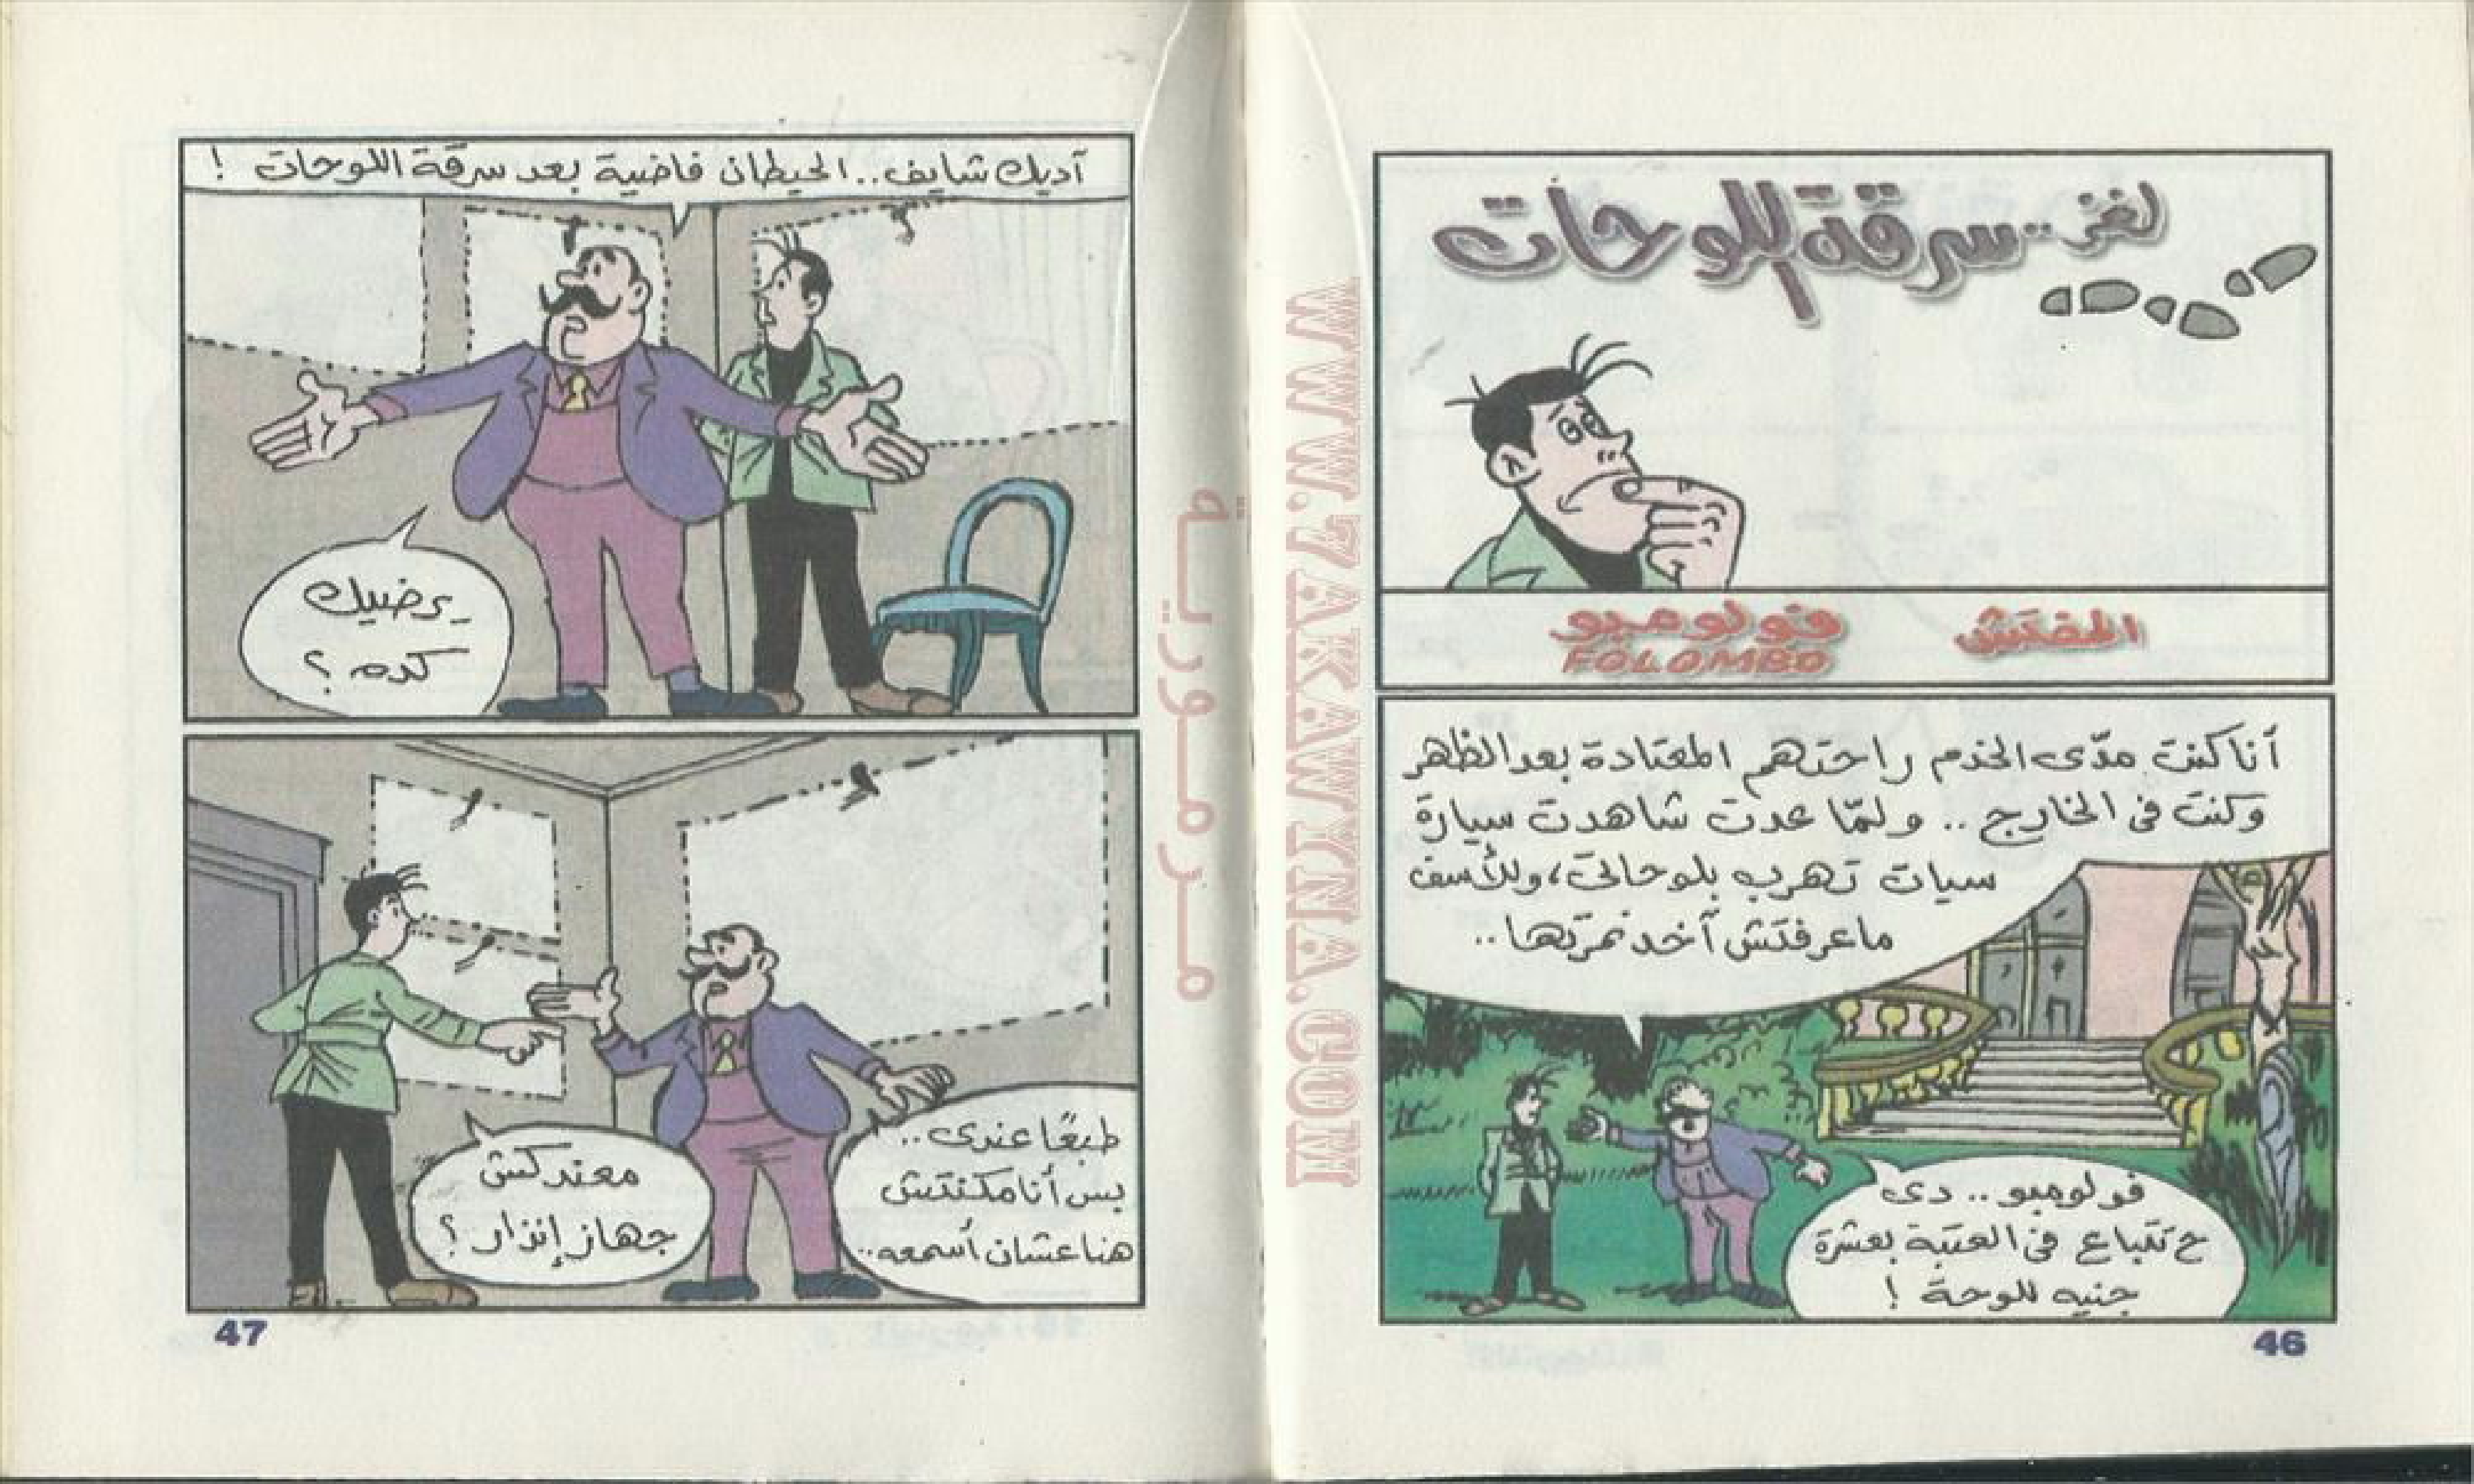 لغز.. سرقة اللوحات
المفتش فولومبو
FOLOMBO
أنا كنت مدّى الخدم راحتهم المعتادة بعد الظهر
وكنت فى الخارج .. ولمّا عدت شاهدت سيارة
سيات تهرب بلوحاتى، وللأسف
ماعرفتش آخد نمرتها..
فولومبو .. دى
ح تتباع فى العتبة بعشرة
جنيه للوحة !
46
آديك شايف.. الحيطان فاضية بعد سرقة اللوحات !
يرضيك
كده ؟
معندكش
جهاز إنذار ؟
طبعًا عندى..
بس أنا مكنتش
هنا عشان أسمعه..
47
WWW.ZAKAWYNA.COM
مزمورية